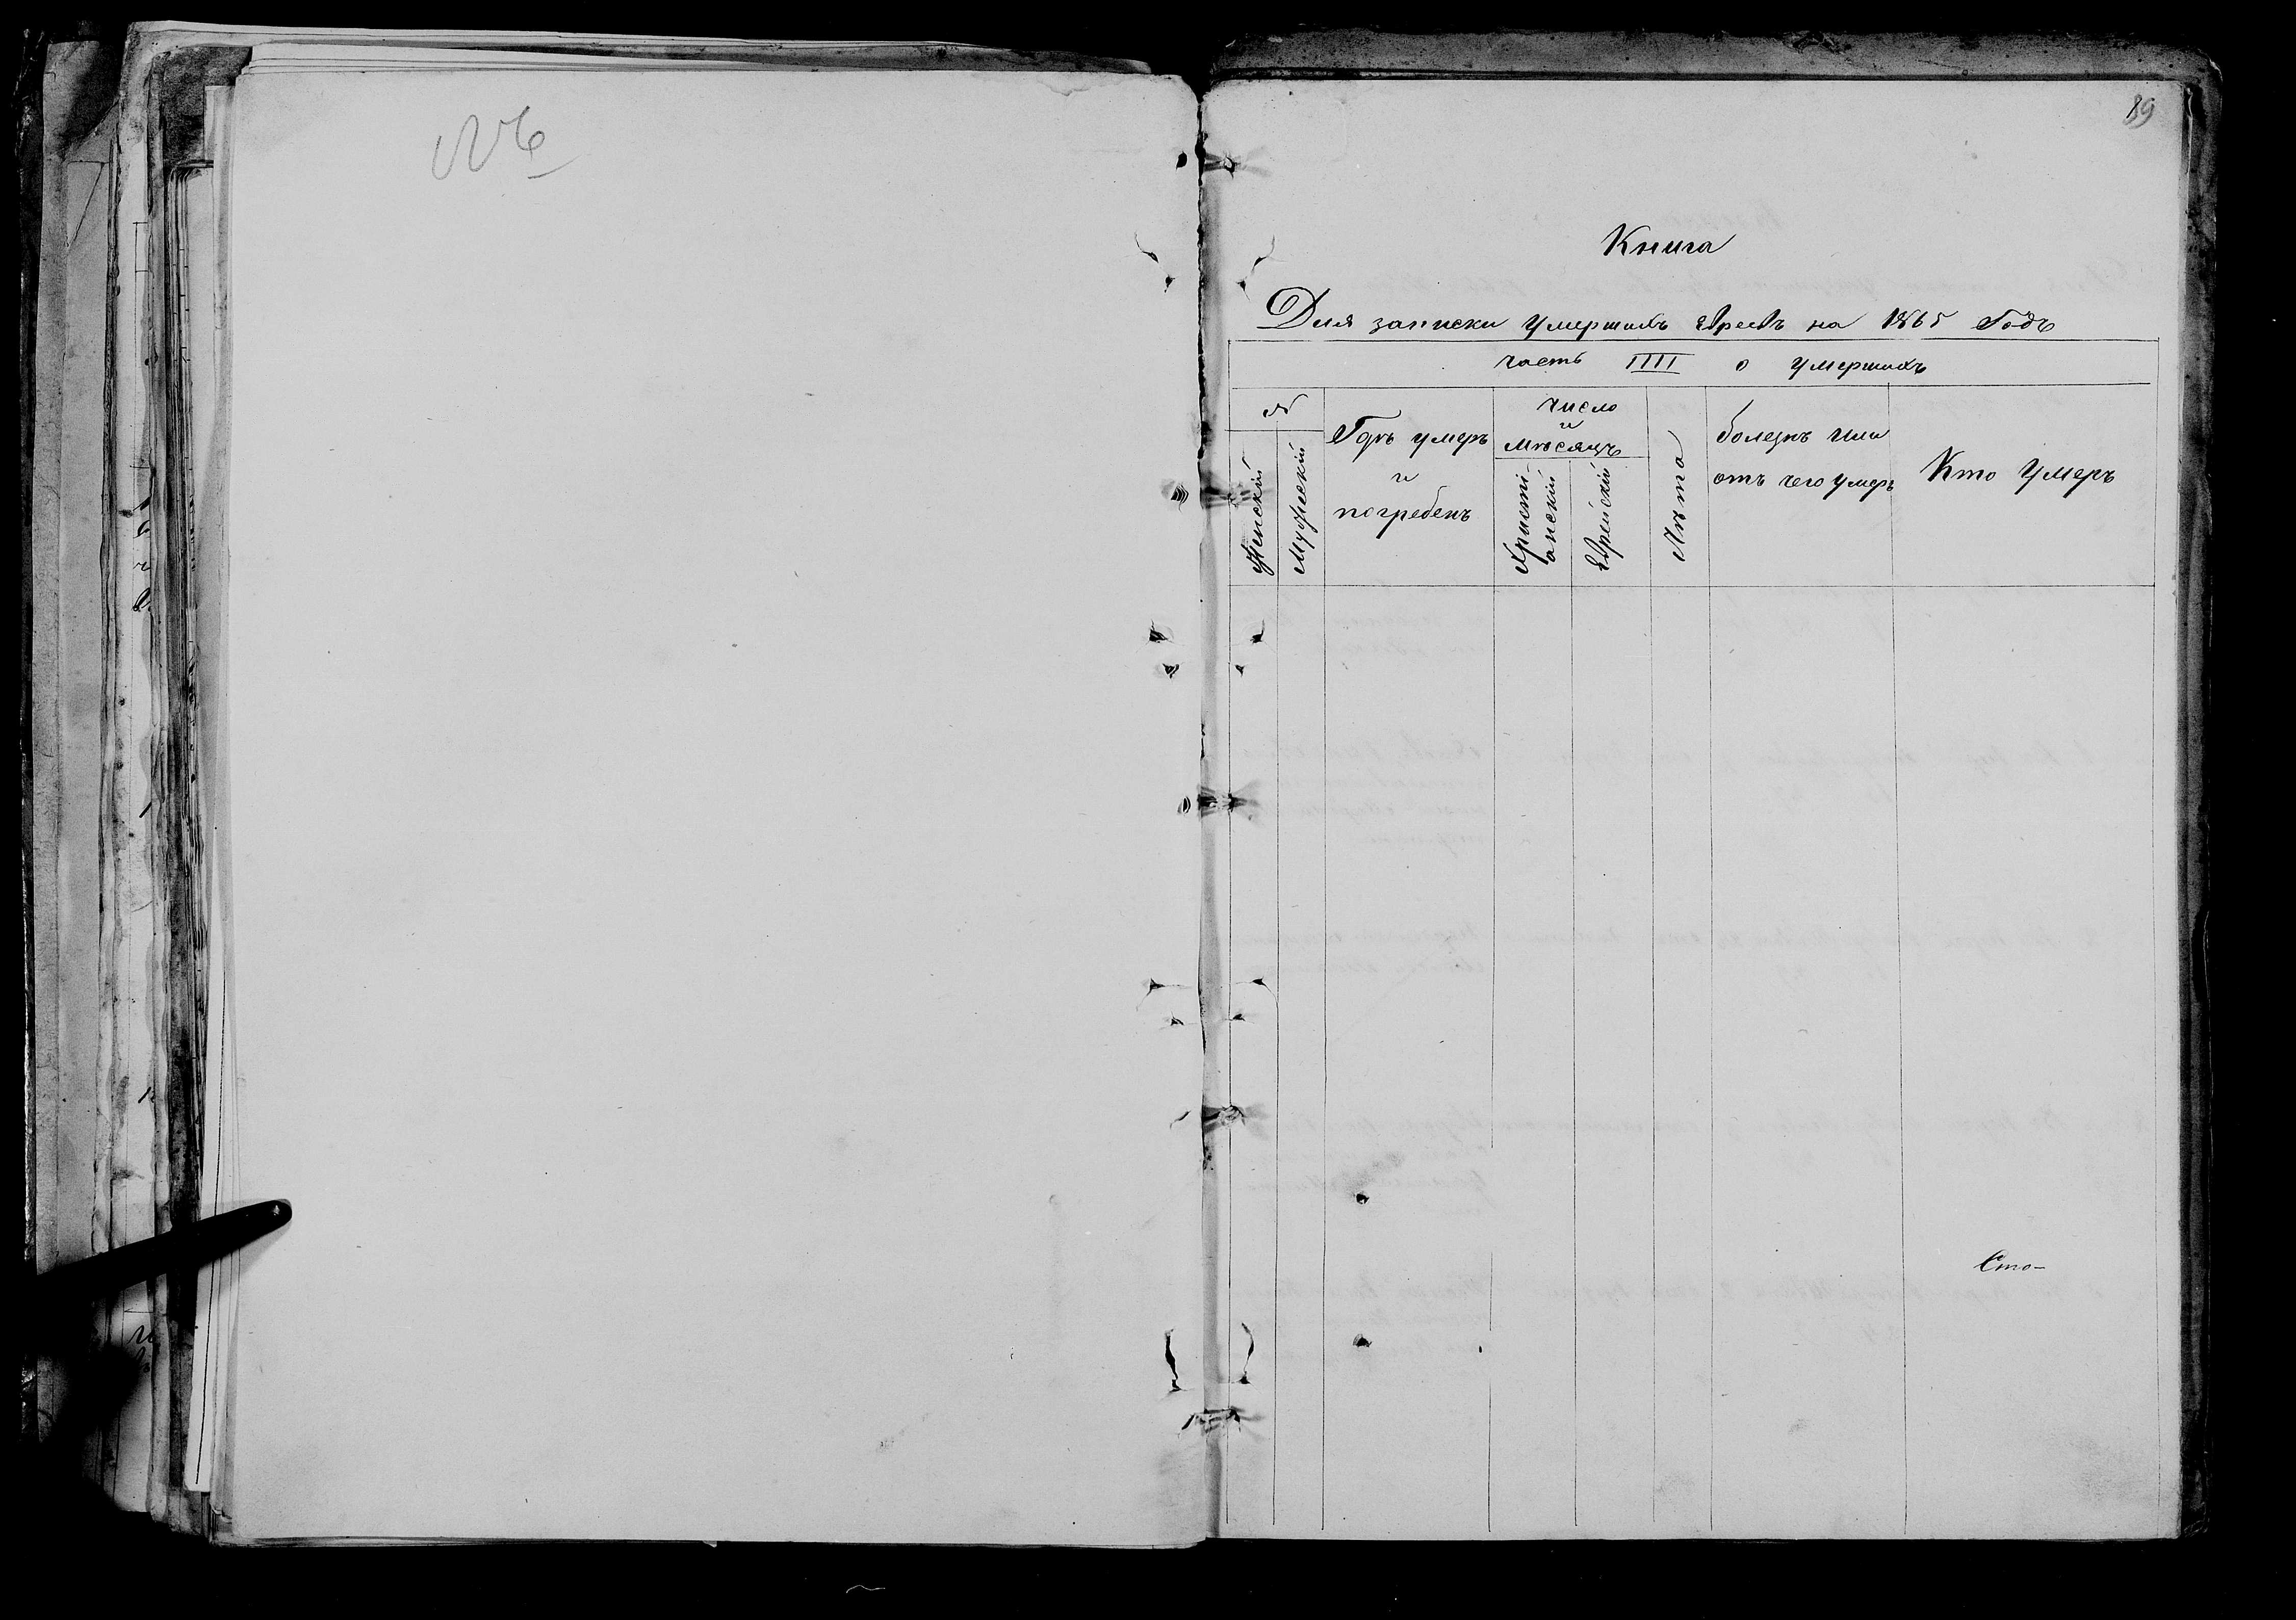 №6
89
Книга
Для записки умершихъ Евреевъ на 1865 Годъ
часть IIII о умершихъ
№
Женскій
Мужескій
Гдѣ умеръ
и
погребенъ
число
и
мѣсяцъ
Христі-
анскій
Еврейскій
Лѣта
болезнь или
отъ чего умеръ
Кто Умеръ
Сто-